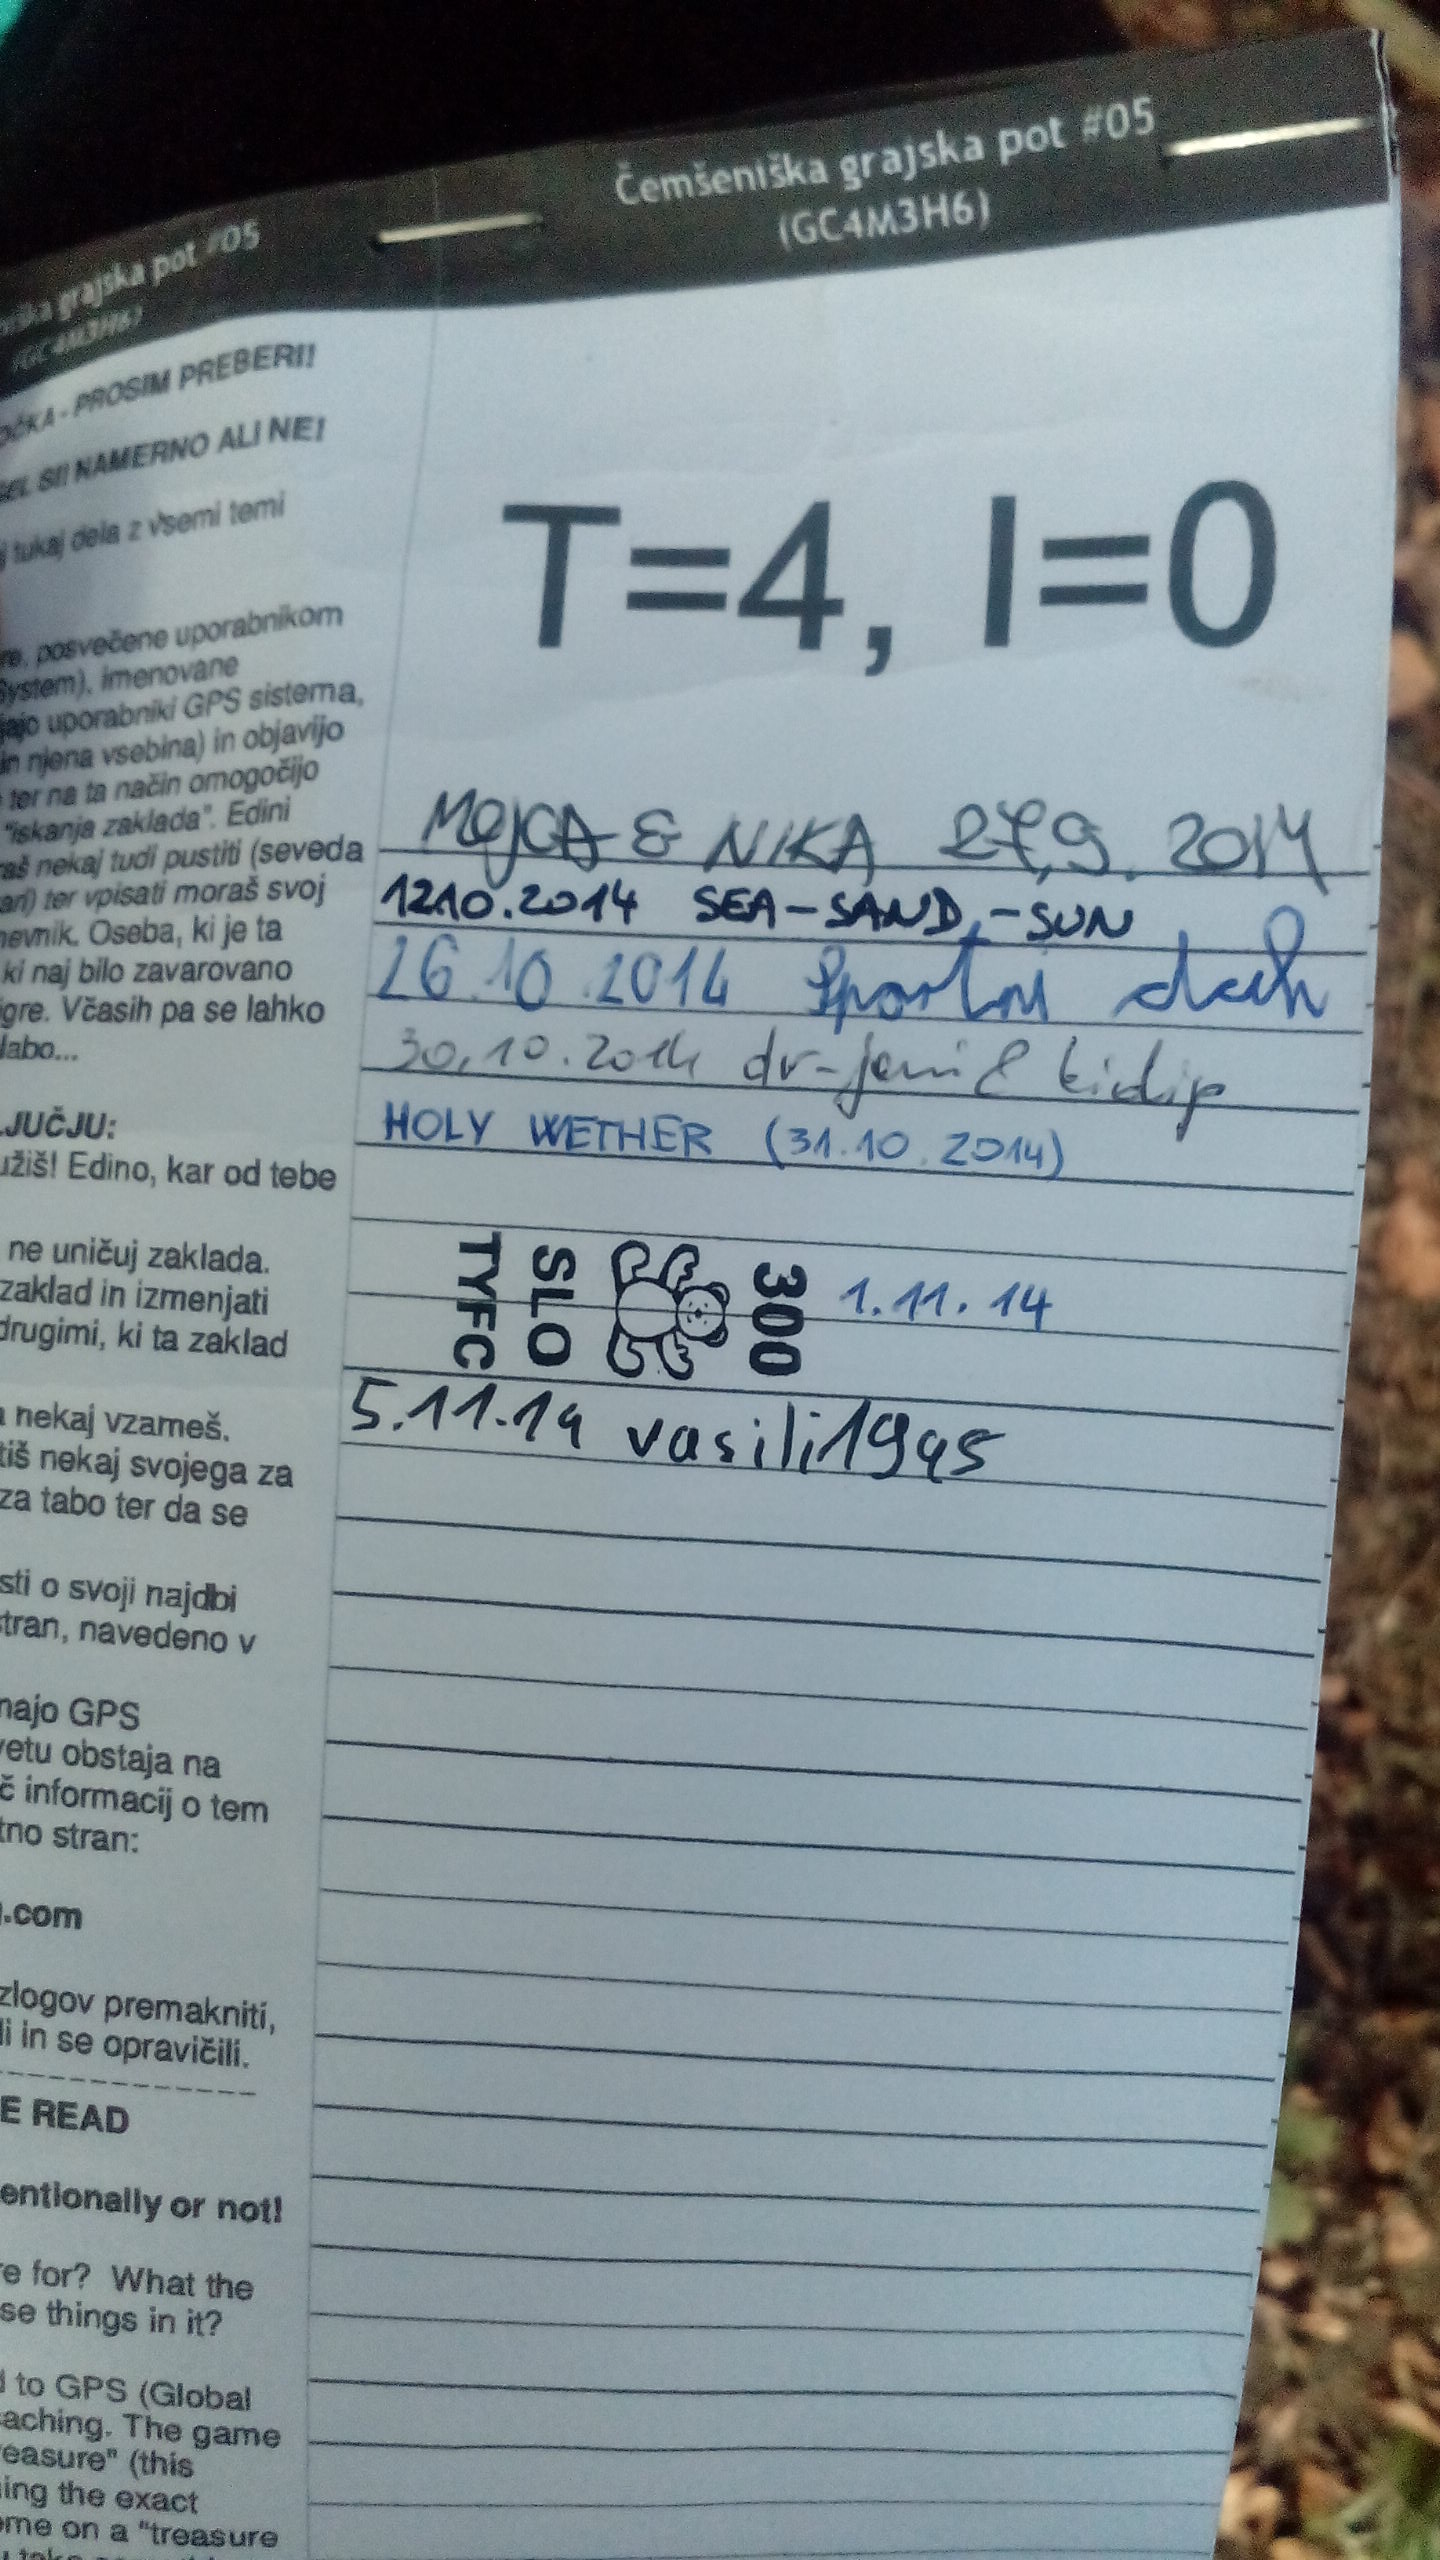 grajska pot #05
(GC4M3H6)
- PROSIM PREBERI!
SI! NAMERNO ALI NE!
tukaj dela z vsemi temi
posvečene uporabnikom
System), imenovane
uporabniki GPS sistema,
in njena vsebina) in objavijo
ter na ta način omogočijo
"iskanja zaklada". Edini
nekaj tudi pustiti (seveda
ter vpisati moraš svoj
Oseba, ki je ta
ki naj bilo zavarovano
igre. Včasih pa se lahko
Edino, kar od tebe
ne uničuj zaklada.
zaklad in izmenjati
drugimi, ki ta zaklad
nekaj vzameš.
nekaj svojega za
za tabo ter da se
o svoji najdbi
stran, navedeno v
GPS
obstaja na
informacij o tem
stran:
.com
premakniti,
in se opravičili.
READ
or not!
for? What the
things in it?
to GPS (Global
The game
"treasure" (this
the exact
on a "treasure
Čemšeniška grajska pot #05
(GC4M3H6)
T=4, I=0
MOJCA & NIKA 27.9. 2014
12.10.2014 SEA-SAND-SUN
26.10.2014 Športni duh
30.10.2014 dr-jeni & kidip
HOLY WETHER (31.10.2014)
300
SLO
TYFC
1.11.14
5.11.14 vasili1945